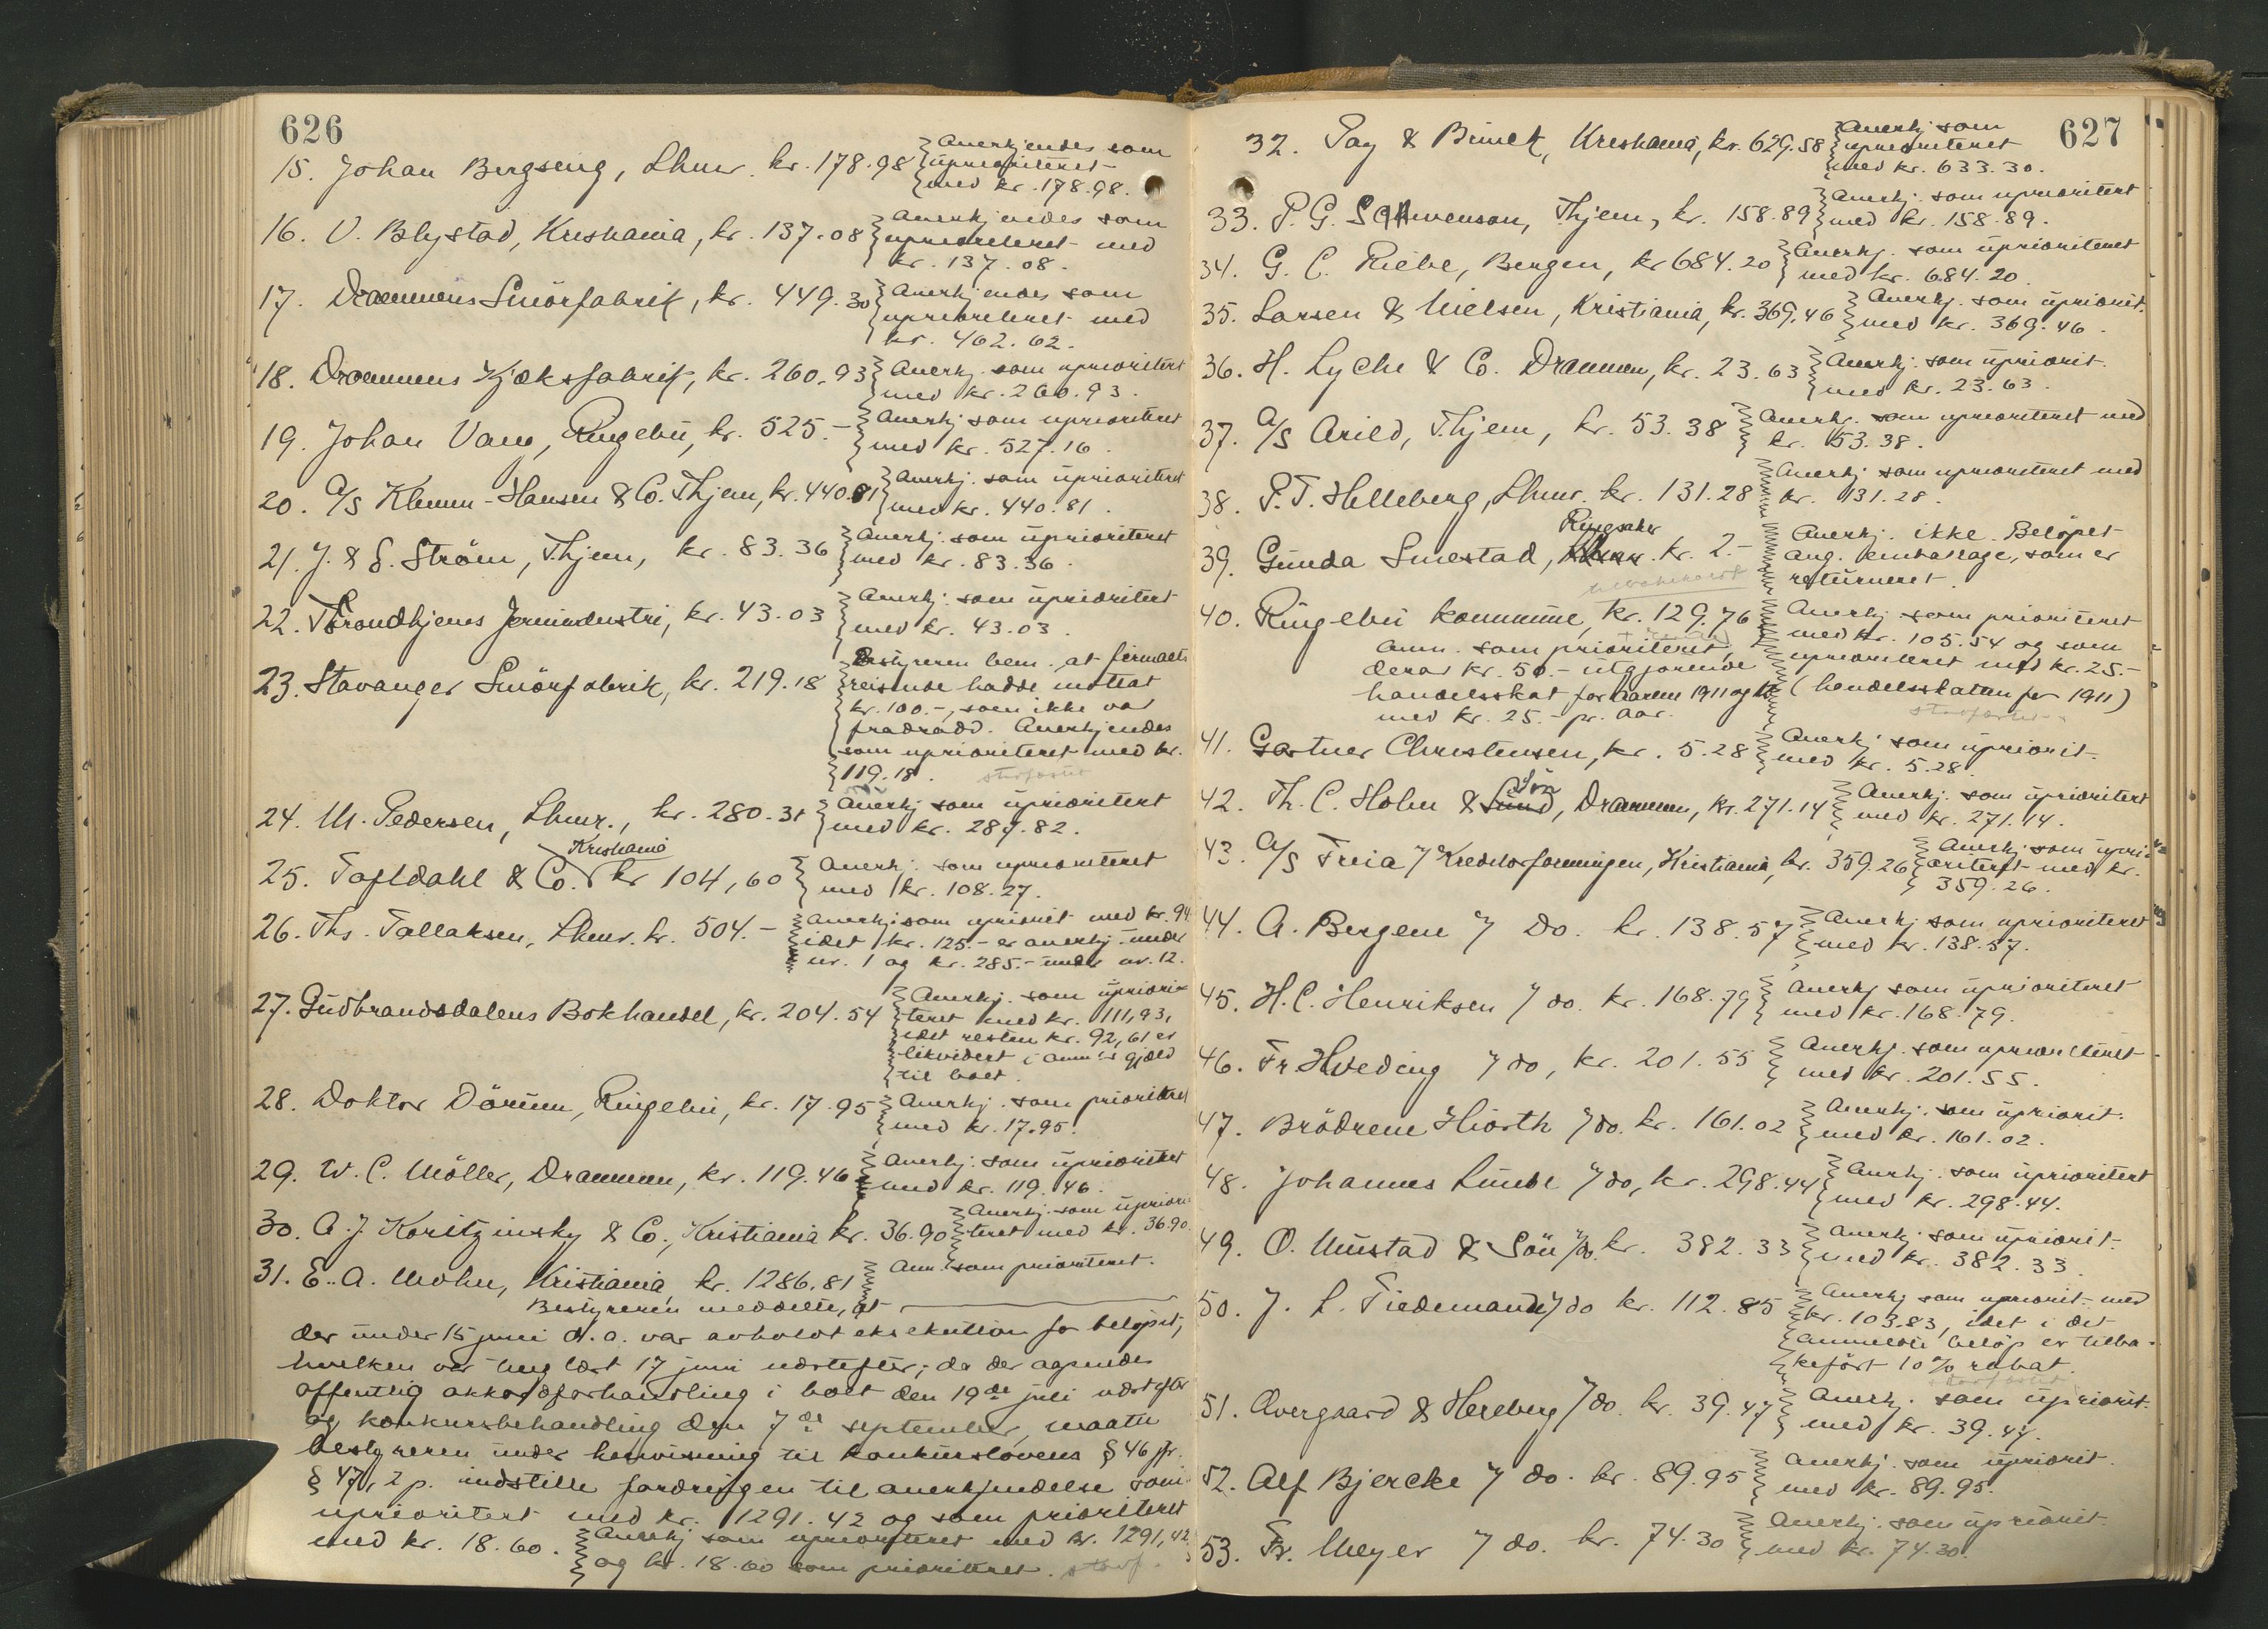 626
15. Johan Bergseng, Lhmr. kr. 178.98
Anerkjendes som
uprioriteret
med kr. 178.98.
16. O. Blystad, Kristiania, kr. 137.08
Anerkjendes som
uprioriteret med
kr. 137.08.
17. Drammens Smörfabrik, kr. 449.30
Anerkjendes som
uprioriteret med
kr. 462.62.
18. Drammens Kjæksfabrik, kr. 260.93
Anerkj. som uprioritert
med kr. 260.93.
19. Johan Vang, Ringebu, kr. 525.-
Anerkj som uprioriteret
med kr. 527.16.
20. A/S Klemm-Hansen & Co. Thjem, kr. 440.81
Anerkj. som uprioriteret
med kr. 440.81.
21. J. & S. Ström, Thjem, kr. 83.36
Anerkj. som uprioriteret
med kr. 83.36.
22. Throndhjems Jernindustri, kr. 43.03
Anerkj. som uprioritert
med kr. 43.03.
23. Stavanger Smörfabrik, kr. 219.18
Bestyreren bem. at firmaets
reisende hadde mottat
kr. 100.-, som ikke var
fradradd. Anerkjendes
som uprioriteret med kr.
119.18.
24. M. Pedersen, Lhmr., kr. 280.31
Anerkj som uprioritert
med kr. 287.82.
Kristiania
25. Taftdahl & Co. kr 104,60
Anerkj. som uprioriteret
med kr. 108.27.
26. Ths. Tallaksen, Lhmr. kr. 504.-
Anerkj. som upriorit med kr. 94
idet kr. 125.- er anerkj. under
nr. 1 og kr. 285.- under nr. 12.
27. Gudbrandsdalens Bokhandel, kr. 204.54
Anerkj. som upriori-
teret med kr. 111,93,
idet resten kr. 92,61 er
likvidert i anm's gjæld
til boet.
28. Doktor Dörum, Ringebu, kr. 17.95
Anerkj. som prioriteret
med kr. 17.95.
29. W. C. Möller, Drammen, kr. 119.46
Anerkj. som uprioritert
med kr. 119.46.
30. A. J. Koritzinsky & Co., Kristiania kr. 36.90
Anerkj. som upriori
teret med kr. 36.90.
31. E. A. Mohn, Kristiania, kr. 1286.81
Anm. som prioriteret.
Bestyreren meddelte, at
der under 15 juni d.a. var avholdt eksekution for beløpet,
hvilken var tinglæst 17 juni næstefter; da der aapnedes
offentlig akkordforhandling i boet den 19de juli næstefter
og konkursbehandling den 7de september, maatte
bestyreren under henvisning til konkurslovens § 46 jfr.
§ 47, 2 p. indstille fordringen til anerkjendelse som
uprioritert med kr. 1291.42 og som prioriteret
med kr. 18.60.
Anerkj som uprioriteret med kr. 1291,42
og kr. 18.60 som prioriteret.
627
32. Pay & Brinck, Kristiania, kr. 629.58
Anerkj som
uprioriteret
med kr. 633.30.
33. P. G. Schwenson, Thjem, kr. 158.89
Anerkj. som uprioritert
med kr. 158.89.
34. G. C. Rieber, Bergen, kr 684.20
Anerkj. som uprioriteret
med kr. 684.20
35. Larsen & Nielsen, Kristiania, kr. 369.46
Anerkj. som upriorit.
med kr. 369.46.
36. H. Lyche & Co. Drammen, kr. 23.63
Anerkj. som upriorit.
med kr. 23.63.
37. A/S Arild, Thjem, kr. 53.38
Anerk. som uprioriteret med
kr. 53.38.
38. P. T. Helleberg, Lhmr. kr. 131.28
Anerkj som uprioriteret med
kr. 131.28.
Ringsaker
39. Gunda Smestad, Lhmr. kr. 2.-
Anerkj. ikke. Beløpet
ang. emballage, som er
returneret.
40. Ringebu kommune, kr. 129.76
Anm. som prioriteret,
derav kr. 50.- utgjørende
handelsskat for aarene 1911 og 12
med kr. 25.- pr. aar.
Anerkj som prioriteret
med kr. 105.54 og som
uprioriteret med kr. 25.-
(handelsskatten for 1911)
41. Gartner Christensen, kr. 5.28
Anerkj som upriorit.
med kr. 5.28.
Sön
42. Th. C. Holm & Lund, Drammen, kr. 271.14
Anerkj. som uprioritert
med kr. 271.14.
43. A/S Freia v/ Kreditorforeningen, Kristiania, kr. 359.26
Anerkj som upri-
oriteret med kr.
359.26.
44. A. Bergene v/ do. kr. 138.57
Anerkj som uprioriteret
med kr. 138.57.
45. H. C. Henriksen v/ do. kr. 168.79
Anerkj som uprioriteret
med kr. 168.79.
46. Fr. Hveding v/ do, kr. 201.55
Anerkj. som uprioriteret
med kr. 201.55.
47. Brödrene Hiorth v/ do. kr. 161.02
Anerkj. som upriorit.
med kr. 161.02.
48. Johannes Lunde v/ do, kr. 298.44
Anerkj. som uprioritert
med kr. 298.44.
49. O. Mustad & Sön v/do kr. 382.33
Anerkj. som upriorit.
med kr. 382.33.
50. J. L. Tiedemand v/ do kr. 112.85
Anerkj som upriorit. med
kr. 103.83, idet i det
anmeldte beløp er tilba-
keført 10% rabat.
51. Overgaard & Herzberg v/ do. kr. 39.47
Anerkj. som upriorit.
med kr. 39.47.
52. Alf Bjercke v/ do. kr. 89.95
Anerkj. som upriorit.
med kr. 89.95.
53. Fr. Meyer v/ do. kr. 74.30
Anerkj. som upriorit.
med kr. 74.30.